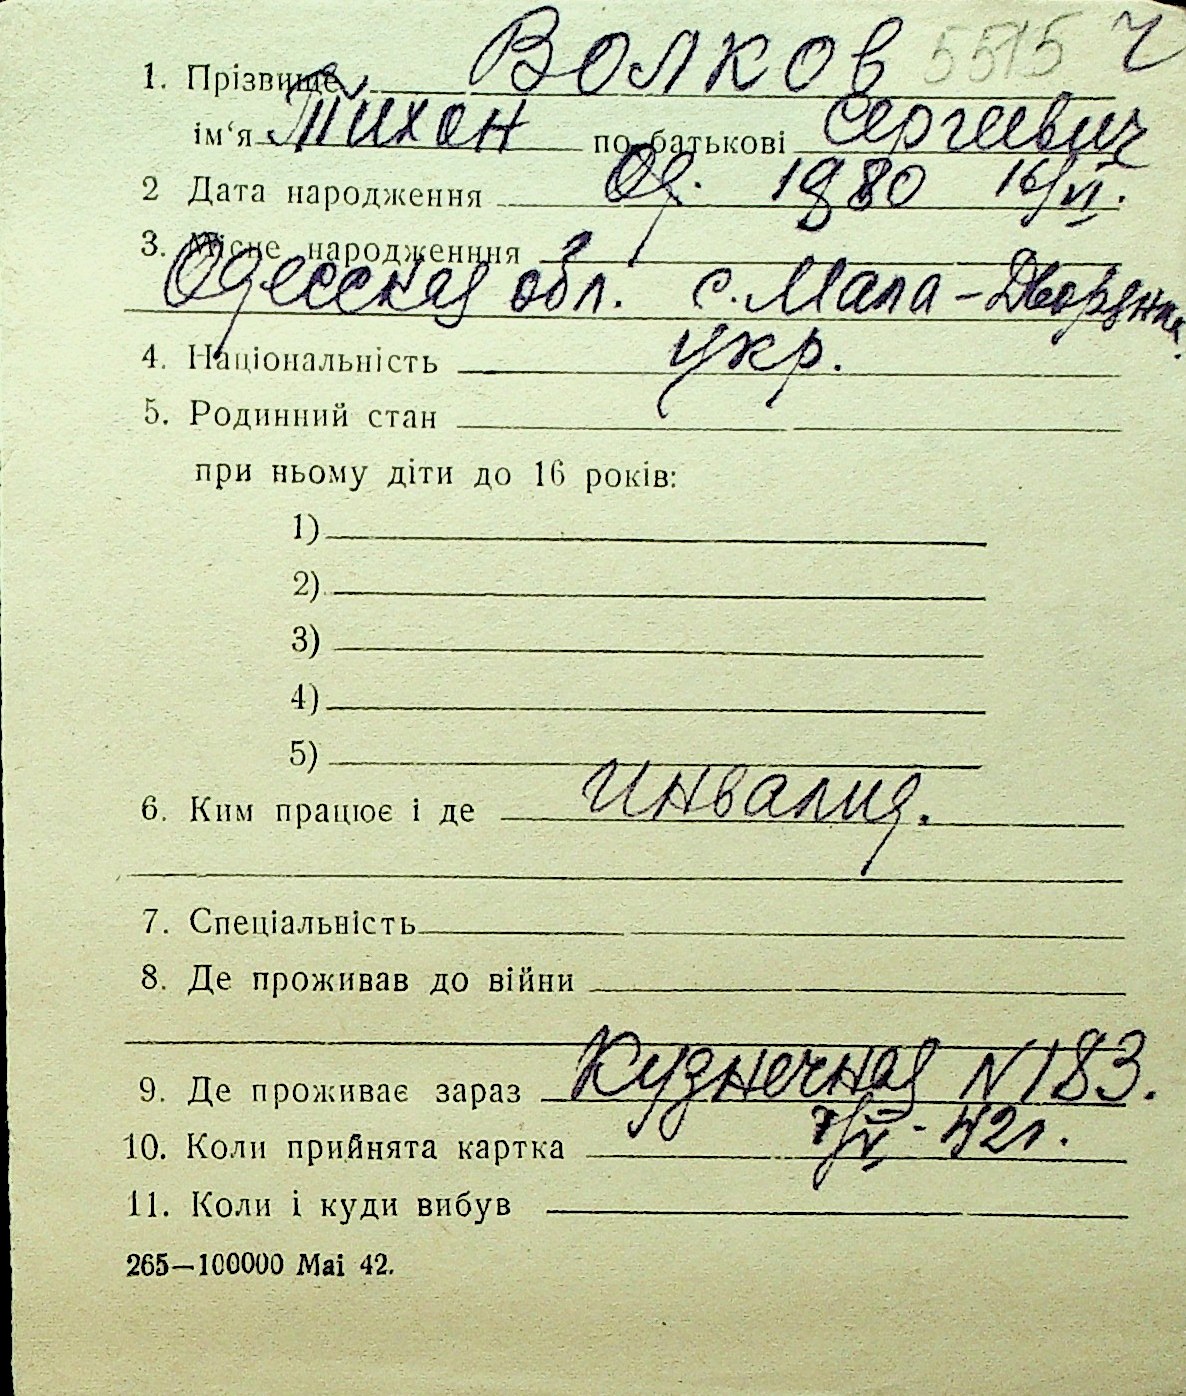 1. Прізвище Волков 5515 Ч
ім‘я Тихон по батькові Сергеевич
2 Дата народження 1880 16/VI.
3. Місце народженння
Одесская обл. с. Мала-
4. Національність укр.
5. Родинний стан
при ньому діти до 16 років:
1)
2)
3)
4)
5)
6. Ким працює і де инвалид.
7. Спеціальність
8. Де проживав до війни
9. Де проживає зараз Кузнечная N 183.
10. Коли прийнята картка 42г.
11. Коли і куди вибув
265—100000 Mai 42.